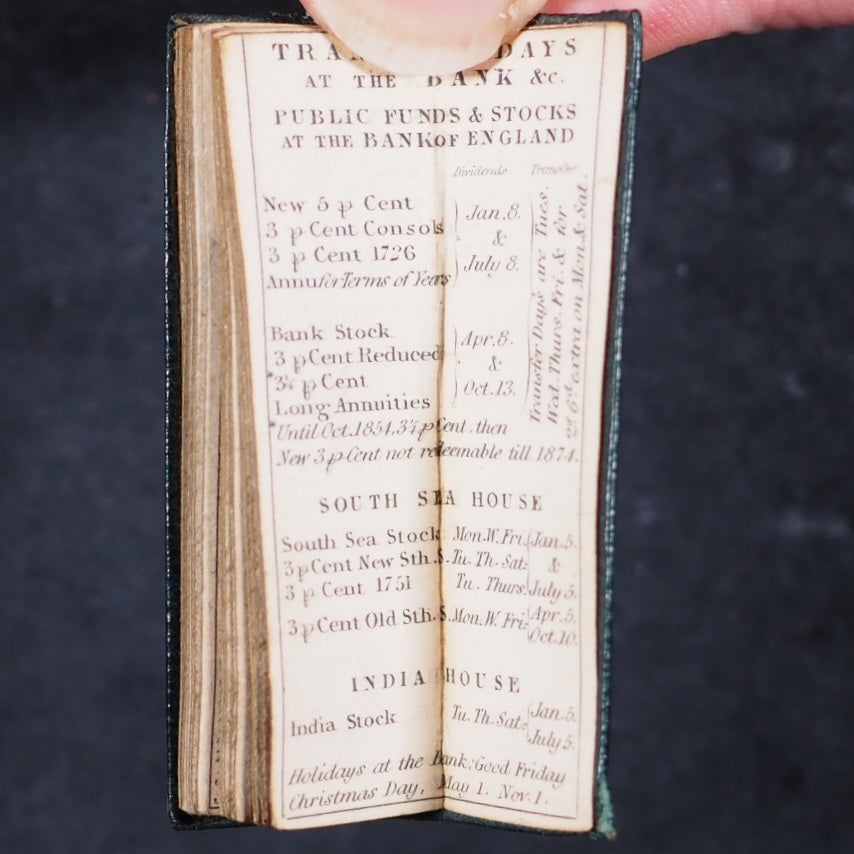 TRA DAYS
AT THE BANK &c.
PUBLIC FUNDS & STOCKS
AT THE BANK OF ENGLAND
Dividends Transfer
New 5 p Cent
3 p Cent Consols
3 p Cent 1726
Annu for Terms of Years
Jan. 8.
&
July 8.
Bank Stock
3 p Cent Reduced
*3¼ p Cent
Long Annuities
Apr. 8.
&
Oct. 13.
Transfer Days are Tues.
Wed. Thurs. Fri. & for
2s 6d extra on Mon & Sat.
*Until Oct. 1854, 3¼ p Cent, then
New 3 p Cent not redeemable till 1874.
SOUTH SEA HOUSE
South Sea Stock Mon. W. Fri. Jan. 5.
3 p Cent New Sth. S. Tu. Th. Sat. &
3 p Cent 1751 Tu. Thurs. July 5.
3 p Cent Old Sth. S. Mon. W. Fri. Apr. 5.
Oct. 10.
INDIA HOUSE
India Stock Tu. Th. Sat. Jan. 5.
July 5.
Holidays at the Bank; Good Friday
Christmas Day, May 1. Nov. 1.